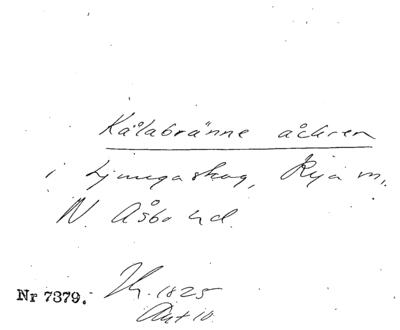 Kålabränne åckren
i Ljungaskog, Rya sn,
N. Åsbo hd.
Nr 7379. 1825
Akt 10